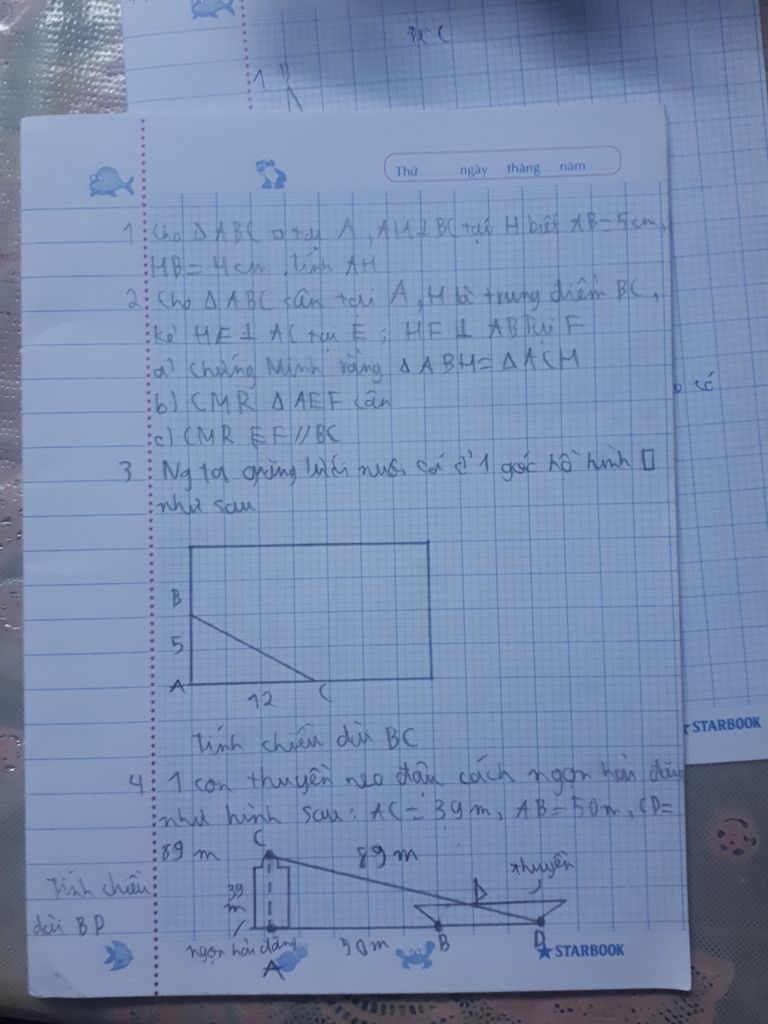 Bài C
1
Thứ ngày tháng năm
1 Cho Δ ABC □ tại A, AH ⊥ BC tại H biết AB = 5cm,
HB = 4cm, tính AH
2 Cho Δ ABC cân tại A, H là trung điểm BC,
kẻ HE ⊥ AC tại E ; HF ⊥ AB tại F
a) Chứng Minh rằng Δ ABH = Δ ACH
b) CMR Δ AEF cân
c) CMR EF // BC
có
3 Ng ta giăng lưới nuôi cá ở 1 góc hồ hình □
như sau
B
5
A
12
C
STARBOOK
Tính chiều dài BC
4 1 con thuyền neo đậu cách ngọn hải đăng
như hình sau: AC = 39m, AB = 50m, CD =
89 m
C
89 m
thuyền
Tính chiều
dài BD
39
m
ngọn hải đăng
A
50m
B
D
STARBOOK